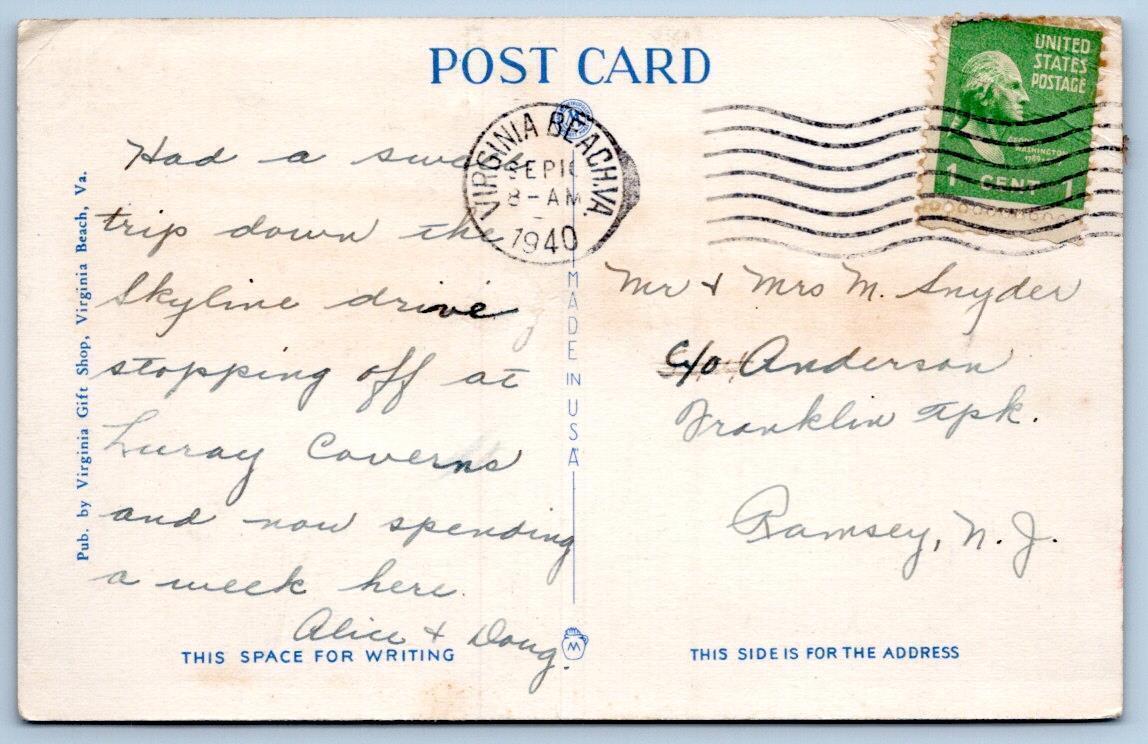 POST CARD
VIRGINIA BEACH, VA.
8-AM
1940
UNITED
STATES
POSTAGE
GEORGE
WASHINGTON
1 CENT 1
Had a swell
trip down the
Skyline drive
stopping off at
Luray Caverns
and now spending
a week here.
Alice & Doug.
Pub. by Virginia Gift Shop, Virginia Beach, Va.
MADE IN USA
Mr & Mrs M. Snyder
c/o Anderson
Franklin Tpk.
Ramsey, N. J.
THIS SPACE FOR WRITING
M
THIS SIDE IS FOR THE ADDRESS